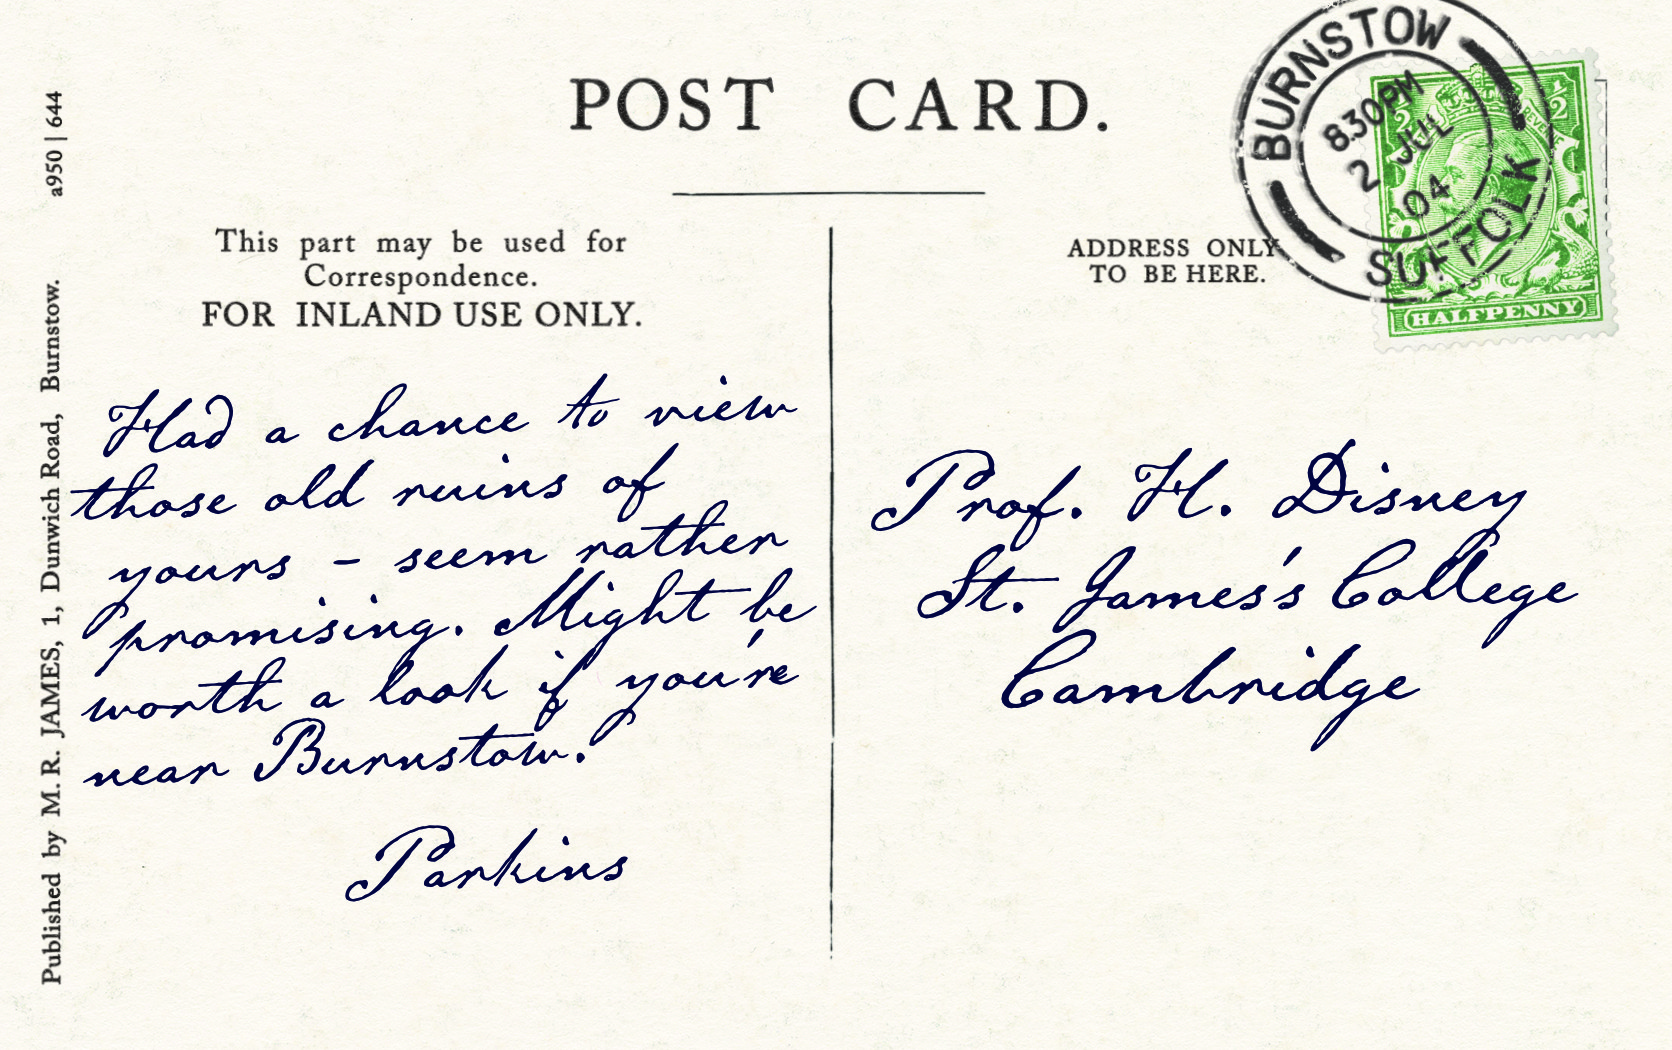 POST CARD.
This part may be used for
Correspondence.
FOR INLAND USE ONLY.
ADDRESS ONLY
TO BE HERE.
BURNSTOW
830PM
2 JUL
04
SUFFOLK
1/2
1/2
REVENUE
HALFPENNY
Had a chance to view
those old ruins of
yours – seem rather
promising. Might be
worth a look if you're
near Burnstow.
Parkins
Prof. H. Disney
St. James's College
Cambridge
Published by M. R. JAMES, 1, Dunwich Road, Burnstow. a950 | 644